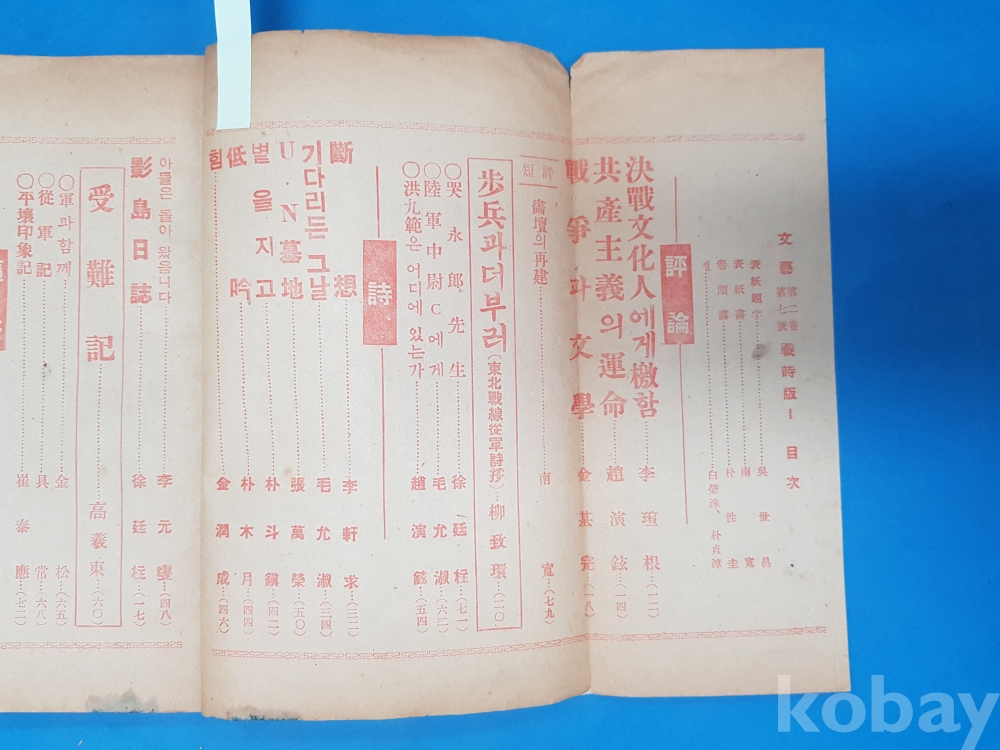 文藝 第二卷 第七號 戰時版 1 目次
表紙題字 吳世昌
表紙畵 南寬
卷頭畵 朴性圭
컽 白榮洙、朴貞淳
評論
決戰文化人에게檄함 李瑄根…(一二)
共産主義의運命 趙演鉉…(一四)
戰爭과文學 金基完…(一八)
短評
畵壇의再建 南寬…(七九)
步兵과더부러(東北戰線從軍詩抄)…柳致環…(二〇)
○哭永郎先生 徐廷柱…(七一)
○陸軍中尉C에게 毛允淑…(六二)
○洪九範은어디에있는가 趙演鉉…(五四)
詩
斷想 李軒求…(三二)
기다리든그날 毛允淑…(三四)
U.N墓地 張萬榮…(五〇)
별을지고 朴斗鎭…(四二)
低吟 朴木月…(四四)
힘 金潤成…(四六)
아들은돌아왔읍니다 李元燮…(四八)
影島日誌 徐廷柱…(一七)
受難記 高羲東…(六〇)
○軍과함께 金松…(六五)
○從軍記 具常…(六八)
○平壤印象記 崔泰應…(七二)
kobay